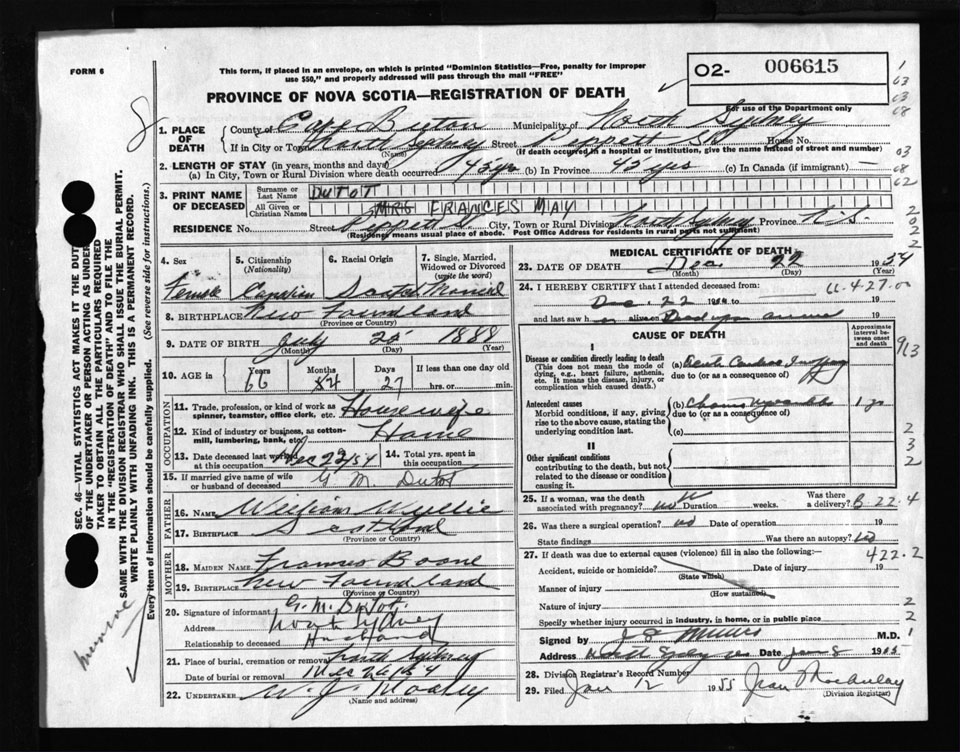 FORM 6
This form, if placed in an envelope, on which is printed "Dominion Statistics—Free, penalty for improper
use $50," and properly addressed will pass through the mail "FREE"
02- 006615
For use of the Department only
PROVINCE OF NOVA SCOTIA—REGISTRATION OF DEATH
1. PLACE OF DEATH
County of Cape Breton Municipality of North Sydney
If in City or Town North Sydney Street Peppett St House No.
(Name) (If death occurred in a hospital or institution, give the name instead of street and number)
2. LENGTH OF STAY (in years, months and days)
(a) In City, Town or Rural Division where death occurred 45 yrs (b) In Province 45 yrs (c) In Canada (if immigrant) —
3. PRINT NAME OF DECEASED
Surname or Last Name DUTOT
All Given or Christian Names MRS FRANCES MAY
RESIDENCE No. Street Peppett St. City, Town or Rural Division North Sydney Province N.S.
(Residence means usual place of abode. Post Office Address for residents in rural parts not sufficient)
4. Sex
5. Citizenship
(Nationality)
6. Racial Origin
7. Single, Married, Widowed or Divorced
(write the word)
Female Canadian Married
8. BIRTHPLACE New Foundland
(Province or Country)
9. DATE OF BIRTH July 25 1888
(Month) (Day) (Year)
10. AGE in
Years Months Days If less than one day
66 27 hrs. or min.
OCCUPATION
11. Trade, profession, or kind of work as
spinner, teamster, office clerk, etc. Housewife
12. Kind of industry or business, as cotton-
mill, lumbering, bank, etc. Home
13. Date deceased last worked
at this occupation Dec 22/54
14. Total yrs. spent in
this occupation
15. If married give name of wife
or husband of deceased G M Dutot
FATHER
16. NAME William Wyllie
17. BIRTHPLACE Scotland
(Province or Country)
MOTHER
18. MAIDEN NAME Frances Boone
19. BIRTHPLACE New Foundland
(Province or Country)
20. Signature of informant G. M. Dutot
Address North Sydney
Relationship to deceased Husband
21. Place of burial, cremation or removal North Sydney
Date of burial or removal
22. UNDERTAKER
(Name and address)
MEDICAL CERTIFICATE OF DEATH
23. DATE OF DEATH Dec. 22 1954
(Month) (Day) (Year)
24. I HEREBY CERTIFY that I attended deceased from:
Dec. 22 19 to 19
and last saw h alive on Dead upon 19
CAUSE OF DEATH
Approximate interval between onset and death
I
Disease or condition directly leading to death
(This does not mean the mode of dying, e.g., heart failure, asthenia, etc. It means the disease, injury, or complication which caused death.)
(a)
due to (or as a consequence of)
Antecedent causes
Morbid conditions, if any, giving rise to the above cause, stating the underlying condition last.
(b)
due to (or as a consequence of)
(c)
II
Other significant conditions
contributing to the death, but not related to the disease or condition causing it.
25. If a woman, was the death
associated with pregnancy? no Duration weeks. Was there a delivery?
26. Was there a surgical operation? no Date of operation 19
State findings Was there an autopsy? no
27. If death was due to external causes (violence) fill in also the following:—
422.2
Accident, suicide or homicide? Date of injury 19
(State which)
Manner of injury
(How sustained)
Nature of injury
Specify whether injury occurred in industry, in home, or in public place
Signed by M.D.
Address North Sydney Date Jan 8 1955
28. Division Registrar's Record Number
29. Filed Jan 12 1955
(Division Registrar)
SEC. 46—VITAL STATISTICS ACT MAKES IT THE DUTY
OF THE UNDERTAKER OR PERSON ACTING AS UNDER-
TAKER TO OBTAIN ALL THE PARTICULARS REQUIRED
IN THE "REGISTRATION OF DEATH" AND TO FILE THE
SAME WITH THE DIVISION REGISTRAR WHO SHALL ISSUE THE BURIAL PERMIT.
WRITE PLAINLY WITH UNFADING INK. THIS IS A PERMANENT RECORD.
Every item of information should be carefully supplied. (See reverse side for instructions.)